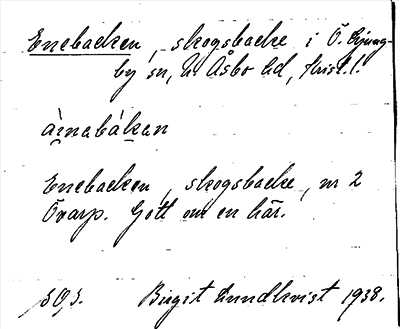 Enebacken, skogsbacke i Ö. Ljung-
by sn, N. Åsbo hd, Krist. l.
àinabákan
Enebacken, skogsbacke, nr 2
Övarp. Gott om en här.
Birgit Lundkvist 1938.